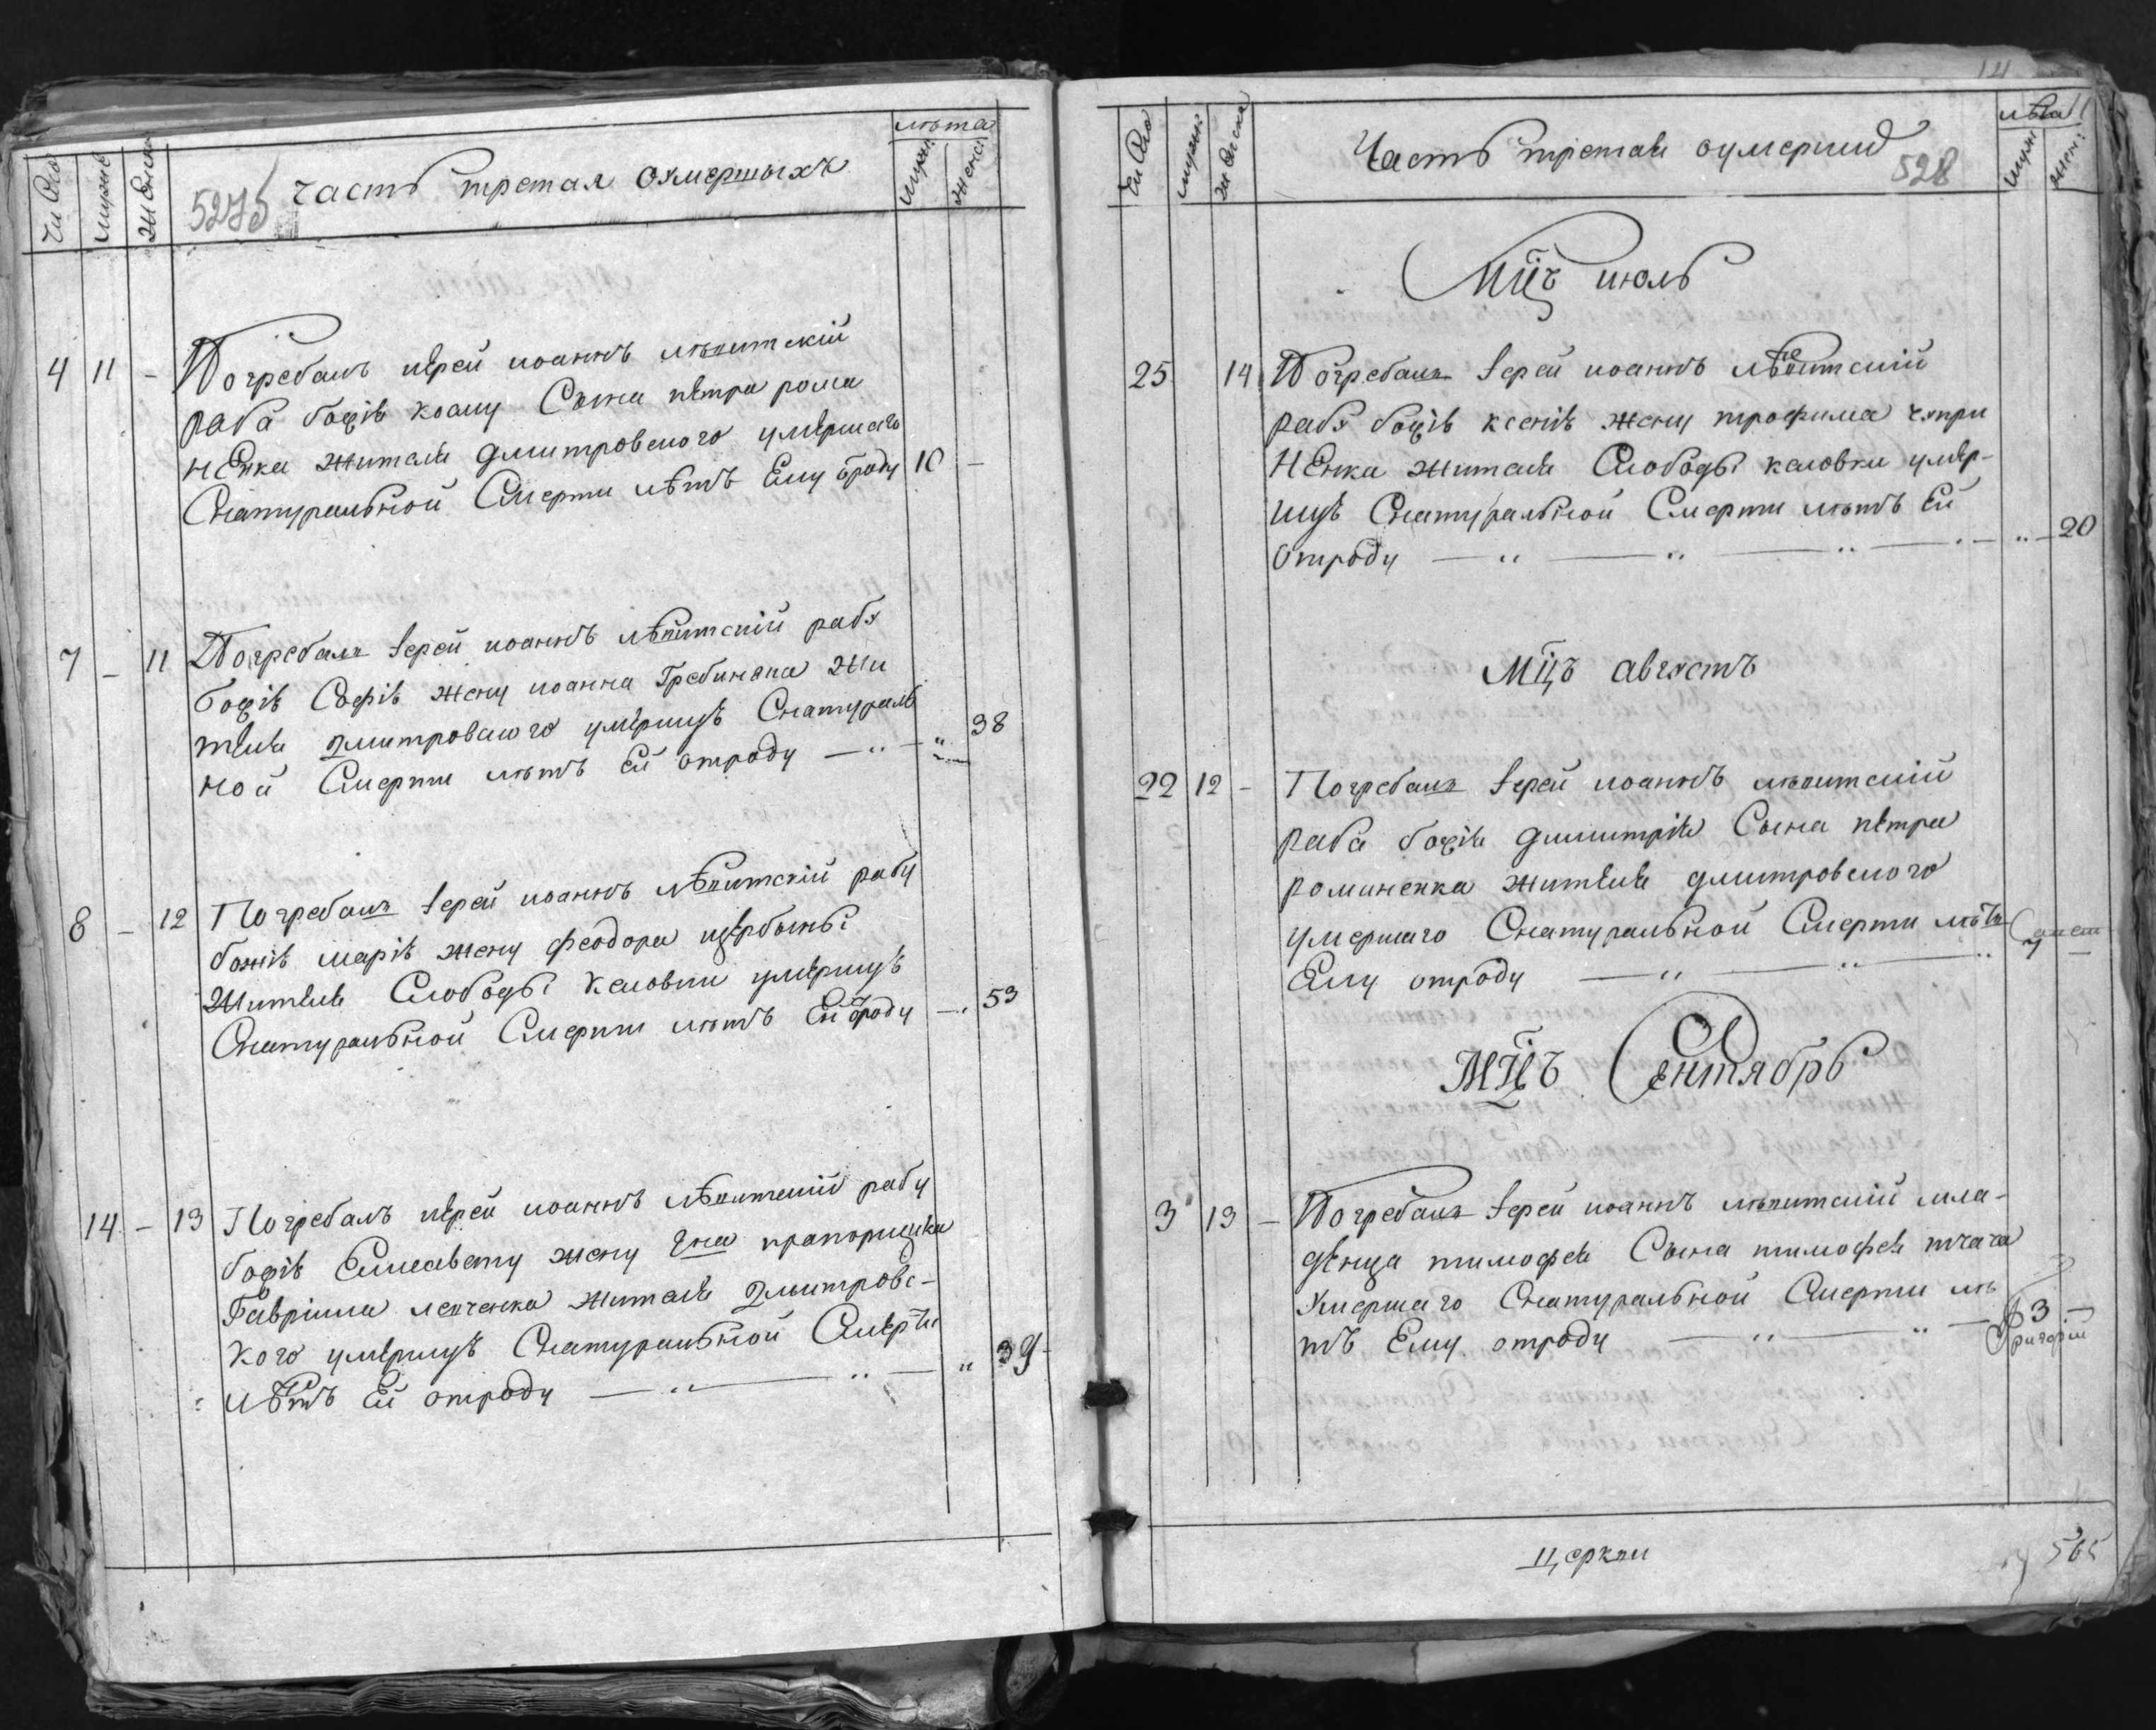 Число
мужск
женска
527
часть третая оумершыхъ
лѣта
мужск
женск
4 11 - Погребалъ иерей иоаннъ лѣпитскій
раба божія козму Сына петра рома
ненка жителя дмитровского умершаго
Снатуральной Смерти лѣтъ Ему ѿроду 10 -
7 - 11 Погребалъ Іерей иоаннъ лѣпитскій рабу
божію Софію жену иоанна Гребиняка жи
теля дмитровского умершую Снатураль
ной Смерти лѣтъ Ей отроду - " - " 38
8 - 12 Погребалъ Іерей иоаннъ лѣпитскій рабу
божію марію жену феодора щербины
жителя Слободы Каловки умершую
Снатуральной Смерти лѣтъ Ей ѿроду - " 53
14 - 13 Погребалъ иерей иоаннъ лѣпитскій рабу
божію Елисавету жену прапорщика
Гавріила левченка жителя дмитровс-
кого умершую Снатуральной Смерти
лѣтъ Ей отроду - " - " - " 39
14
Число
мужск
женска
Часть третая оумершихъ
528
лѣта
муж
жен:
Мцъ июль
25 14 Погребалъ Іерей иоаннъ лѣпитскій
рабу божію ксенію жену трофима чупри
ненка жителя Слободы каловки умер-
шую Снатуральной Смерти лѣтъ Ей
отроду - " - " - " - " 20
Мцъ августъ
22 12 - Погребалъ Іерей иоаннъ лѣпитскій
раба божія дмитрія Сына петра
романенка жителя дмитровского
умершаго Снатуральной Смерти лѣтъ
Ему отроду - " - " - " 7 -
Мцъ Сентябрь
3 13 - Погребалъ Іерей иоаннъ лѣпитскій мла-
денца тимофея Сына тимофея ткача
Умершаго Снатуральной Смерти лѣ
тъ Ему отроду - " - " - 3 -
Церкви
565